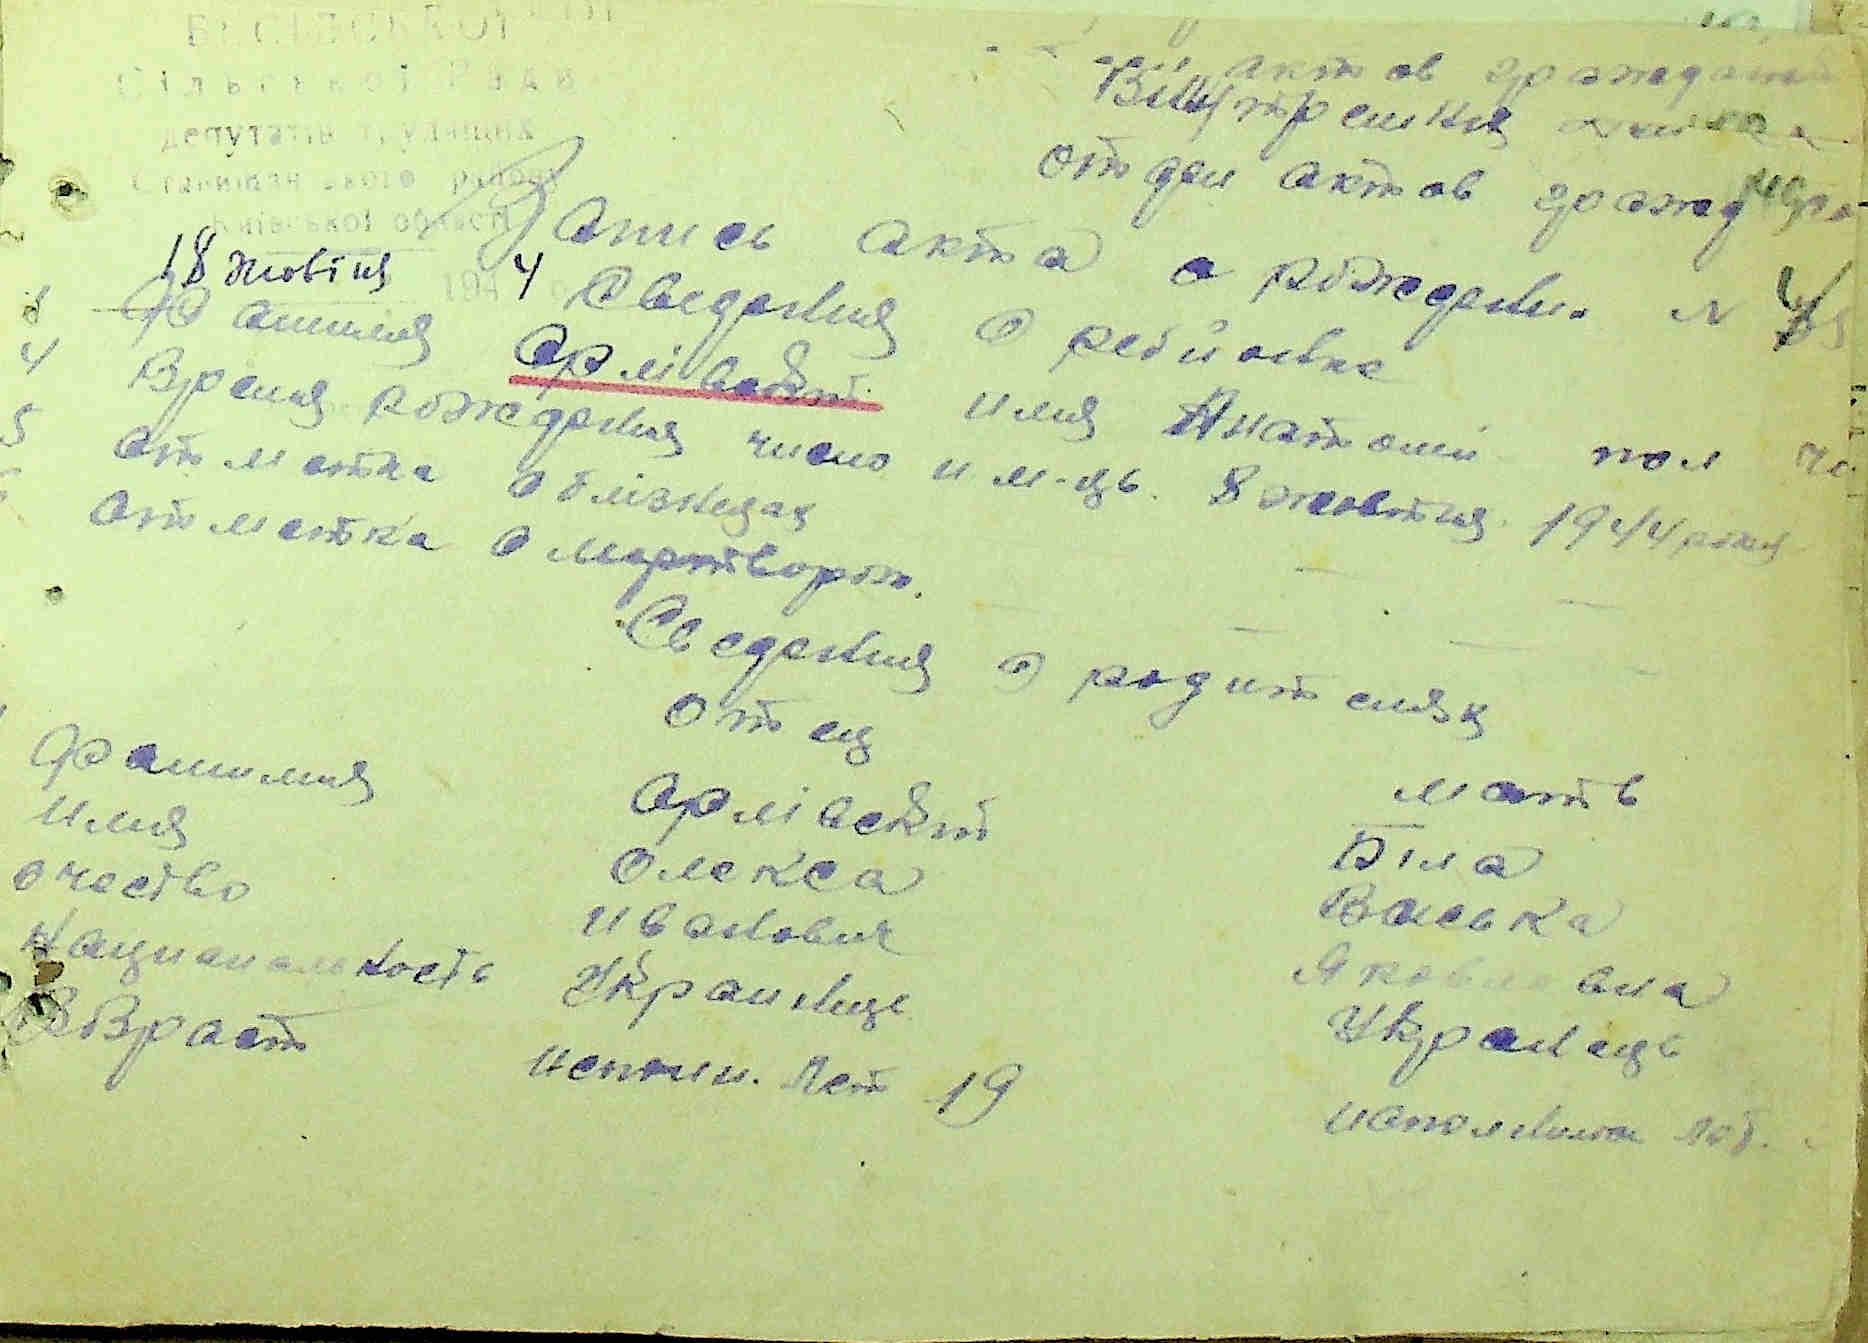 Сільської Ради
депутатів трудящих
району
Київської області
18 жовтня 194 4
актов граждан
отдел актов гражд
Запись акта о рождени. N 4
Сведения о ребйонке
1 Фамилия Орлівский имя Анатолий пол
4 Время рождения число и м-ць. 8 жовтня 1944 рокя
5 отметка облізнецах
отметка о мертворож.
Сведения о родителях
отец мать
Фамилия Орлівский Біла
имя Олекса Васька
очество Иванович Яковлевна
Национальность Украинць Украинець
Возраст исполн. лет 19 исполнилось лет.